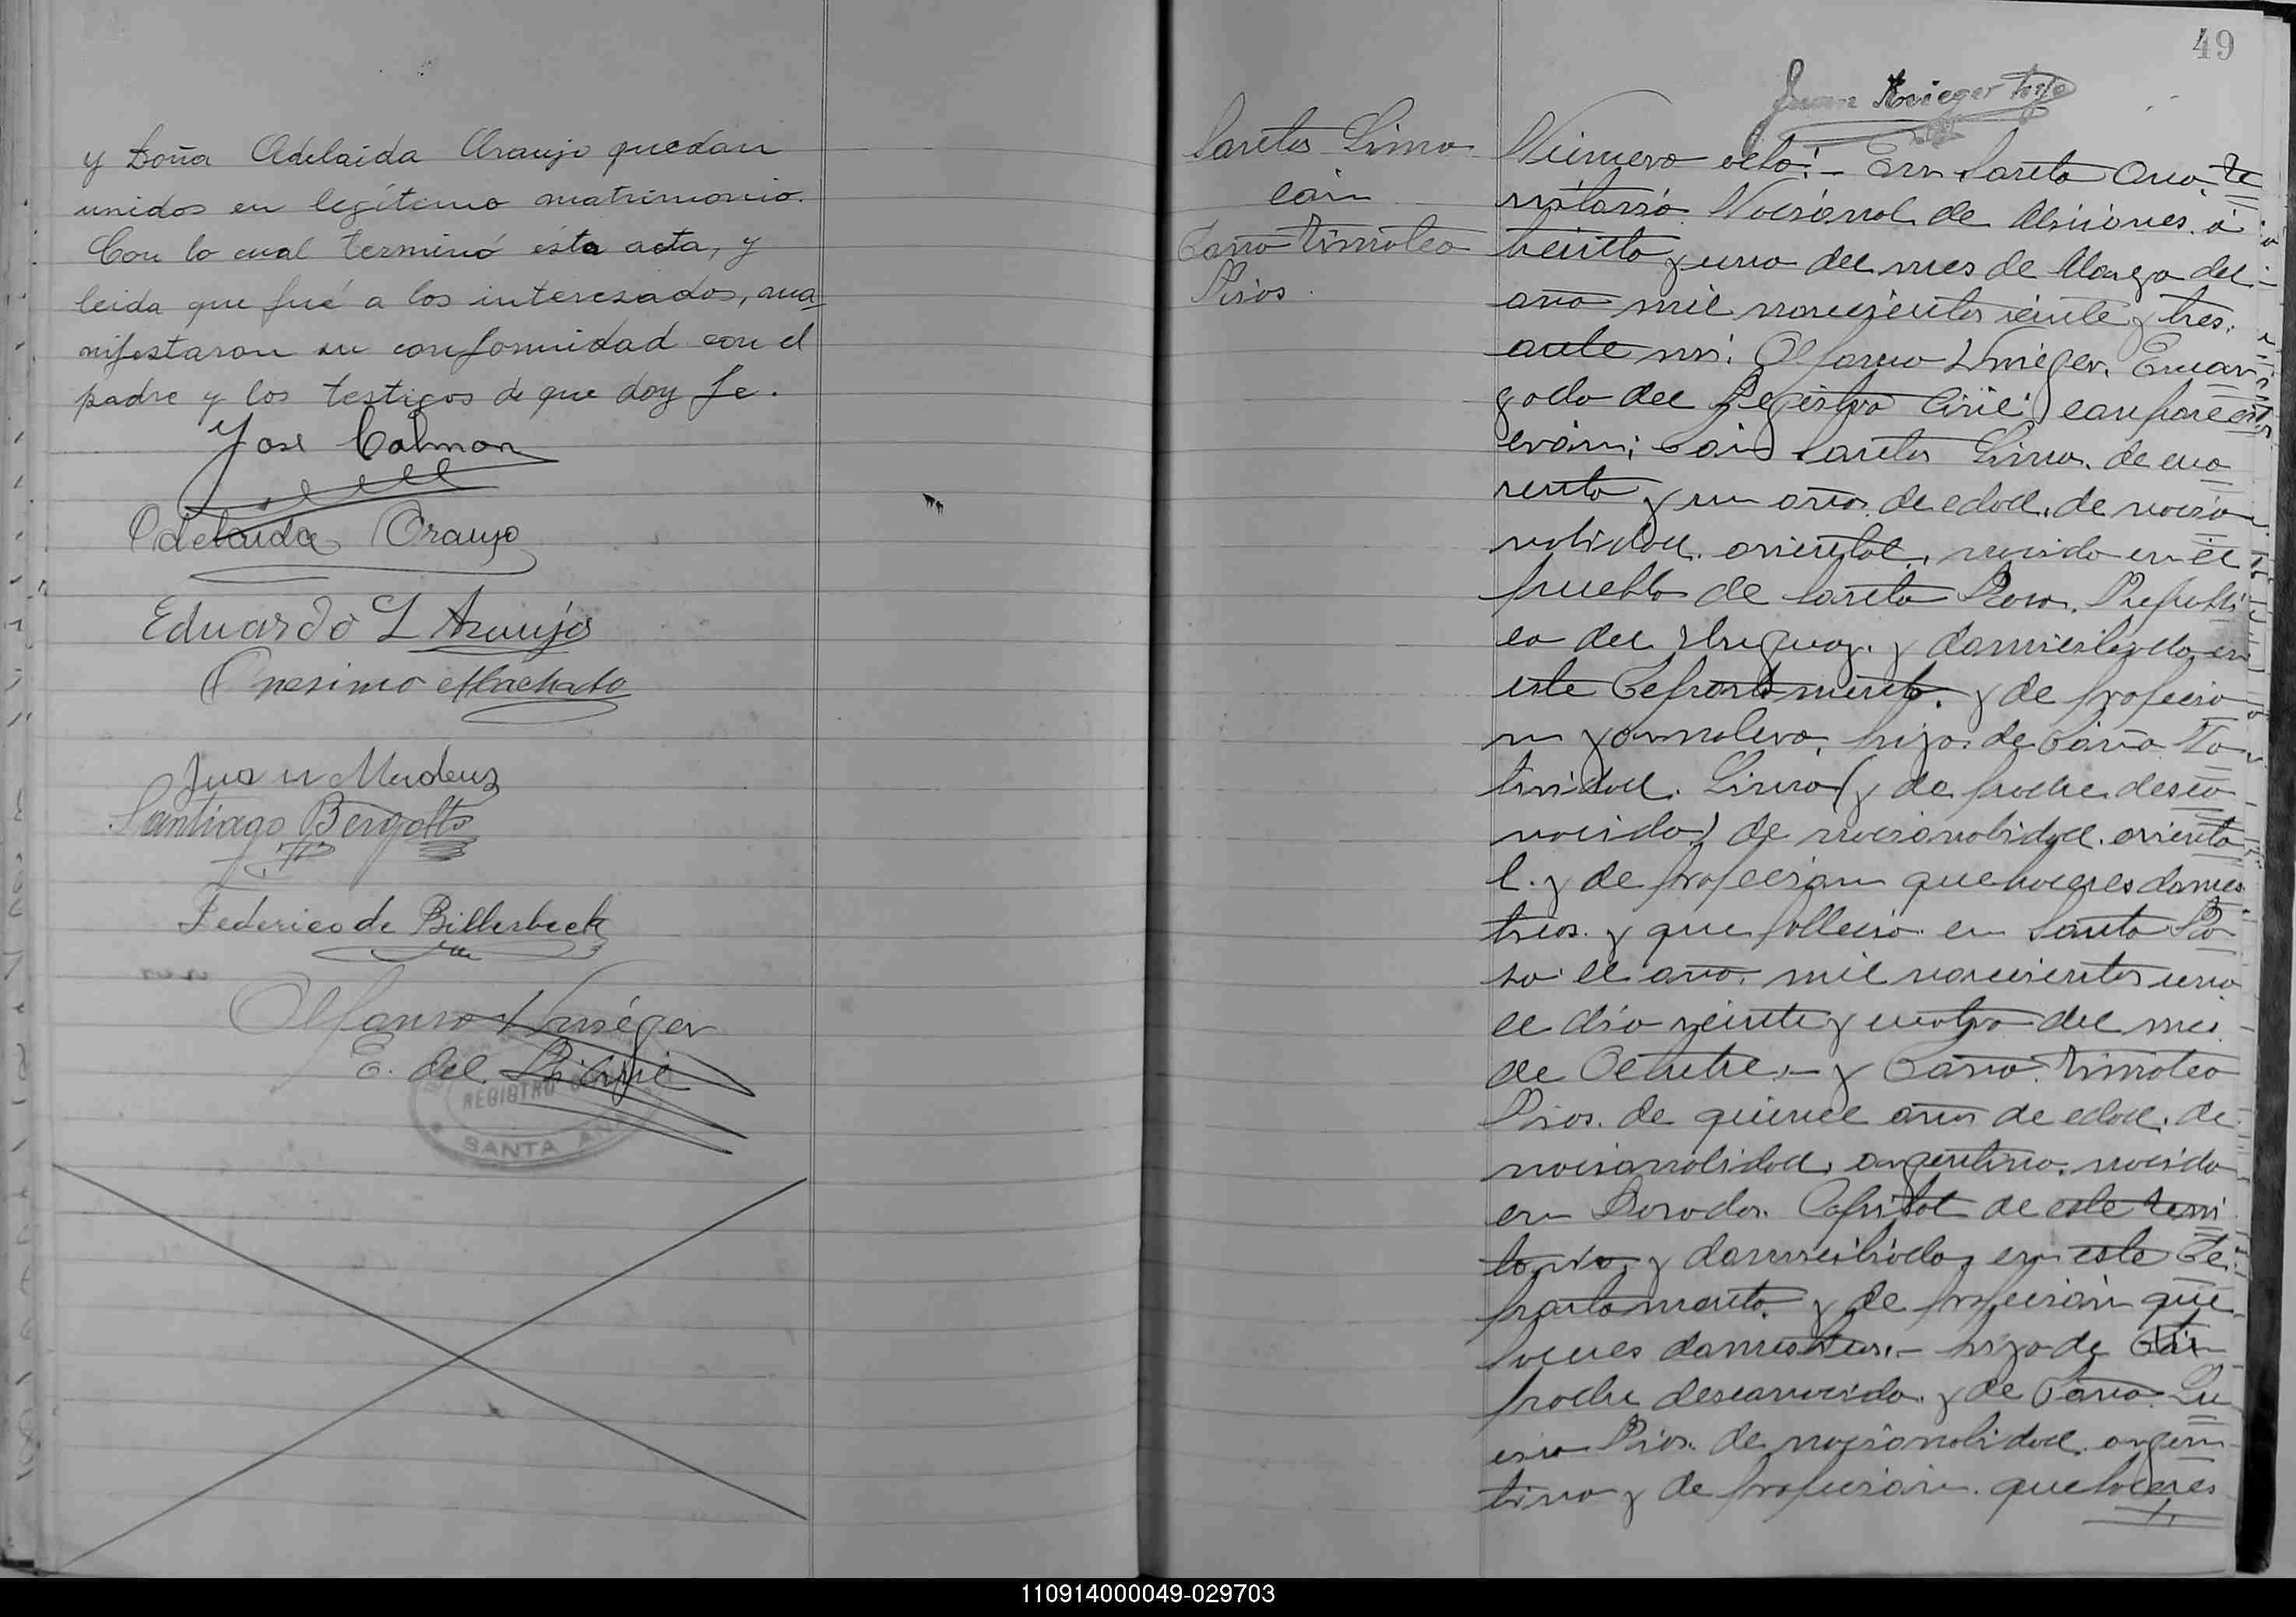 y Doña Adelaida Araujo quedan
unidos en legítimo matrimonio.
Con lo cual terminó ésta acta, y
leida que fué a los interesados, ma
nifestaron su conformidad con el
padre y los testigos de que doy fe.
Jose Calmon
Adelaida Araujo
Eduardo L Araujo
Onesimo Machado
Juan Mendenz
Santiago Bergotto
Federico de Billerbeck
Alfonso Krieger
E. del R. Civil
REGISTRO
SANTA ANA
49
Juan Krieger
Santos Lima
con
Doña Timotea
Rios
Número ocho:- En Santa Ana, te
rritorio Nacional de Misiones. á
treinta y uno del mes de Marzo del
año mil novecientos veinte y tres.
ante mi: Alfonso Krieger. Encar
gado del Registro Civil; comparec
erón; Don Santos Lima. de cua
renta y un años. de edad. de nacio
nalidad. oriental. nacido en el
pueblo de Santa Rosa. Republi
ca del Uruguay. y domiciliado en
este Departamento. y de profecio
n jornalero. hijo de Doña
Lima (y de padre desco
nocido) de nacionalidad. orienta
l. y de profecion quehaceres domes
ticos. y que fallecio en Santa Ro
sa el año. mil novecientos uno
el dia veinte y cuatro del mes
de Octubre.- y Doña Timotea
Rios. de quince años de edad. de
nacionalidad. argentina. nacida
en Posadas. Capital de este terri
torio. y domiciliada en este De
partamento. y de profecion que
haceres domesticos.- hija de
padre desconocido. y de Doña Lu
cia Rios. de nacionalidad. argen
tina y de profecion. quehaceres
110914000049-029703